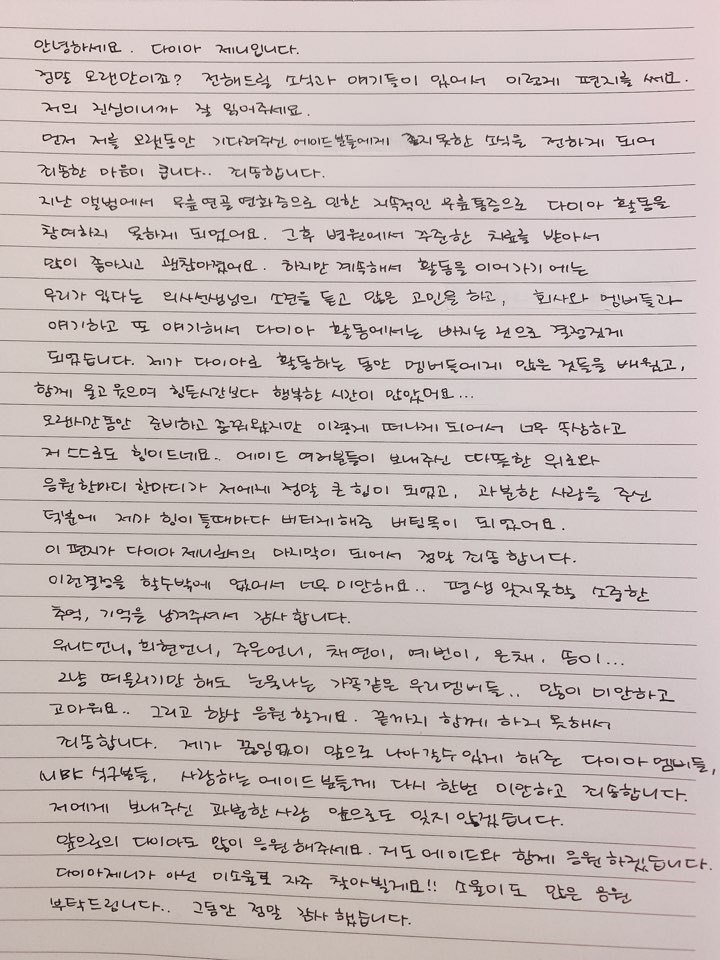 안녕하세요. 다이아 제니입니다.
정말 오랜만이죠? 전해드릴 소식과 얘기들이 있어서 이렇게 편지를 써요.
저의 진심이니까 잘 읽어주세요.
먼저 저를 오랫동안 기다려주신 에이드분들에게 좋지못한 소식을 전하게 되어
죄송한 마음이 큽니다.. 죄송합니다.
지난 앨범에서 무릎연골연화증으로 인한 지속적인 무릎통증으로 다이아 활동을
참여하지 못하게 되었어요. 그후 병원에서 꾸준한 치료를 받아서
많이 좋아지고 괜찮아졌어요. 하지만 계속해서 활동을 이어가기에는
무리가 있다는 의사선생님의 소견을 듣고 많은 고민을 하고, 회사와 멤버들과
얘기하고 또 얘기해서 다이아 활동에서는 빠지는 것으로 결정짓게
되었습니다. 제가 다이아로 활동하는 동안 멤버들에게 많은 것들을 배웠고,
함께 울고 웃으며 힘든시간보다 행복한 시간이 많았어요...
오랜시간동안 준비하고 꿈꿔왔지만 이렇게 떠나게 되어서 너무 속상하고
저 스스로도 힘이드네요.. 에이드 여러분들이 보내주신 따뜻한 위로와
응원 한마디 한마디가 저에게 정말 큰 힘이 되었고, 과분한 사랑을 주신
덕분에 제가 힘이 들때마다 버티게 해준 버팀목이 되었어요.
이 편지가 다이아 제니로서의 마지막이 되어서 정말 죄송합니다.
이런결정을 할수밖에 없어서 너무 미안해요.. 평생 잊지못할 소중한
추억, 기억을 남겨주셔서 감사합니다.
유니스언니, 희현언니, 주은언니, 채연이, 예빈이, 은채, 솜이...
그냥 떠올리기만 해도 눈물나는 가족같은 우리멤버들.. 많이 미안하고
고마워요.. 그리고 항상 응원할게요. 끝까지 함께 하지 못해서
죄송합니다. 제가 끊임없이 앞으로 나아갈수있게 해준 다이아 멤버들,
MBK 식구분들, 사랑하는 에이드분들께 다시 한번 미안하고 죄송합니다.
저에게 보내주신 과분한 사랑 앞으로도 잊지 않겠습니다.
앞으로의 다이아도 많이 응원해주세요. 저도 에이드와 함께 응원하겠습니다.
다이아제니가 아닌 이소율로 자주 찾아뵐게요!! 소율이도 많은 응원
부탁드립니다.. 그동안 정말 감사했습니다.